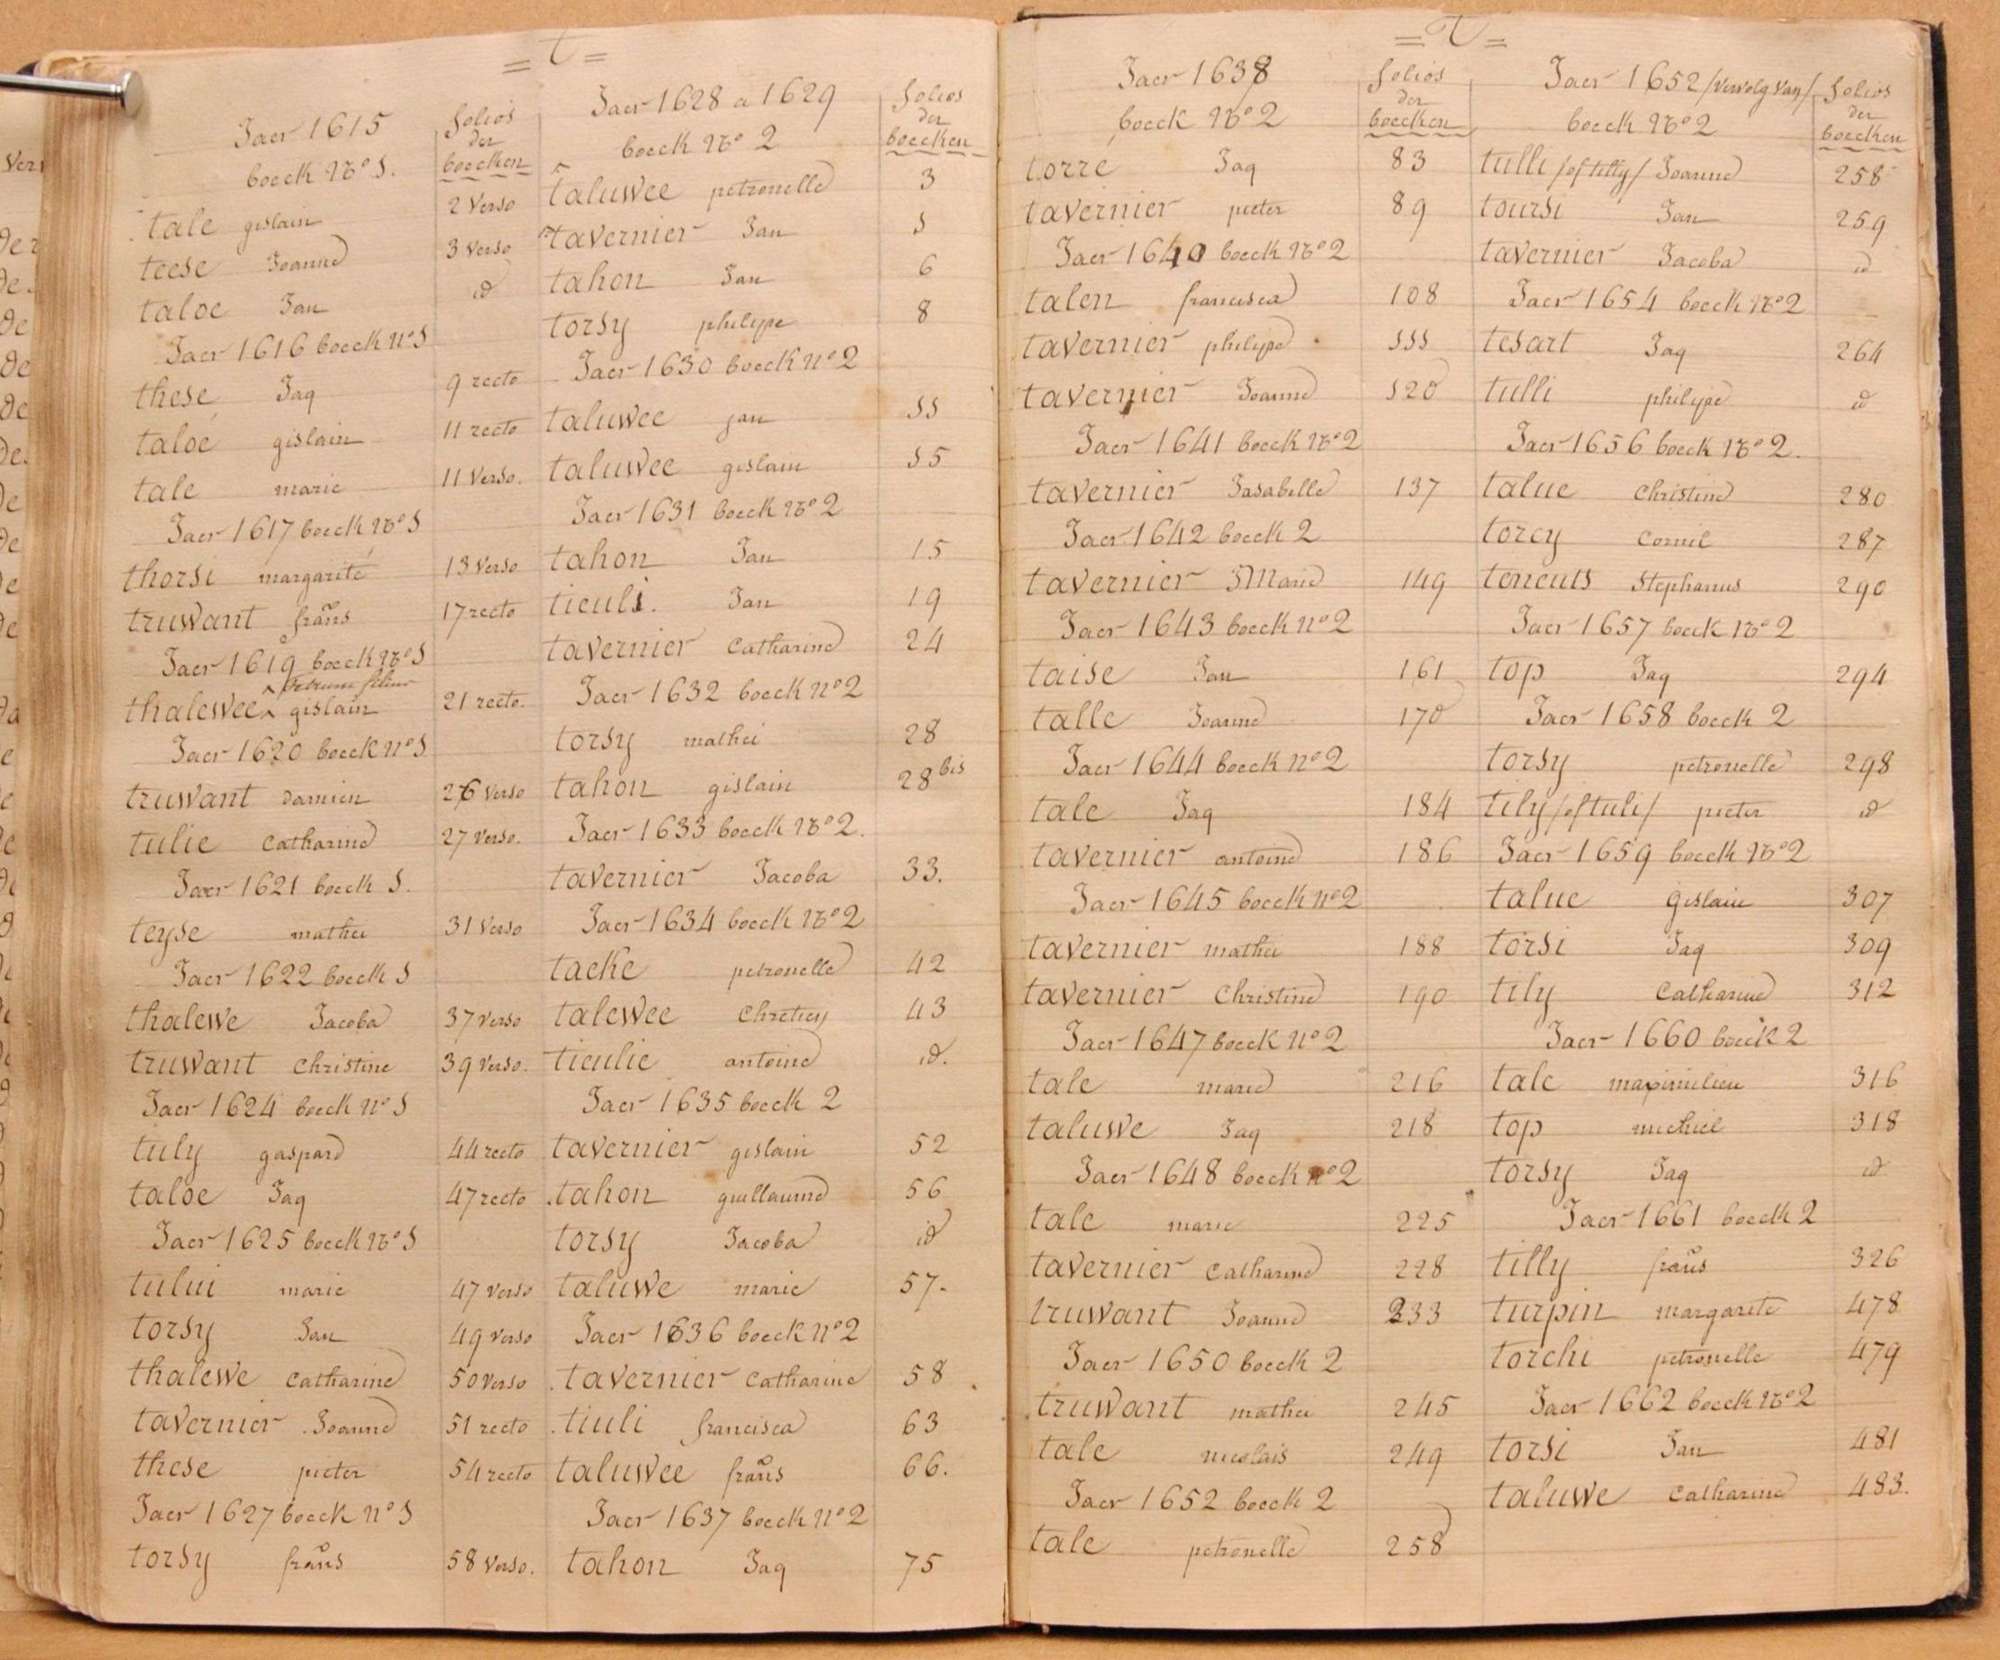 = T =
Jaer 1615
boeck No 1.
folios
der
boecken
tale gislain 2 verso
teese Joanne 3 verso
taloe Jan id
Jaer 1616 boeck no 1
these Jaq 9 recto
taloé gislain 11 recto
tale marie 11 verso.
Jaer 1617 boeck No 1
thorsi margarite 13 verso
truwant frans 17 recto
Jaer 1619 boeck No 1
petrum filius
thalewee ^ gislain 21 recto.
Jaer 1620 boeck no 1
truwant damien 26 verso
tulie catharine 27 verso.
Jaer 1621 boeck 1.
teyse matheu 31 verso
Jaer 1622 boeck 1
thalewe Jacoba 37 verso
truwant christine 39 verso.
Jaer 1624 boeck no 1
tuly gaspard 44 recto
taloe Jaq 47 recto
Jaer 1625 boeck No 1
tului marie 47 verso
torsy Jan 49 verso
thalewe catharine 50 verso
tavernier Joanne 51 recto
these pieter 54 recto
Jaer 1627 boeck no 1
torsy frans 58 verso.
Jaer 1628 a 1629
boeck No 2
folios
der
boecken
taluwee petronelle 3
tavernier Jan 5
tahon Jan 6
torsy philipe 8
Jaer 1630 boeck no 2
taluwee jan 11
taluwee gislain 15
Jaer 1631 boeck No 2
tahon Jan 15
ticuli. Jan 19
tavernier catharine 24
Jaer 1632 boeck no 2
torsy matheu 28
tahon gislain 28 bis
Jaer 1633 boeck No 2.
tavernier Jacoba 33.
Jaer 1634 boeck No 2
tacke petronelle 42
talewee chretien 43
ticulie antoine id.
Jaer 1635 boeck 2
tavernier gislain 52
tahon guillaume 56
torsy Jacoba id
taluwe marie 57.
Jaer 1636 boeck no 2
tavernier catharine 58
tiuli francisca 63
taluwee frans 66.
Jaer 1637 boeck no 2
tahon Jaq 75
= T =
Jaer 1638
boeck No 2
folios
der
boecken
torré Jaq 83
tavernier pieter 89
Jaer 1640 boeck No 2
talen francisca 108
tavernier philipe 111
tavernier Joanne 120
Jaer 1641 boeck No 2
tavernier Jasabelle 137
Jaer 1642 boeck 2
tavernier J Marie 149
Jaer 1643 boeck no 2
taise Jan 161
talle Joanne 170
Jaer 1644 boeck no 2
tale Jaq 184
tavernier antoine 186
Jaer 1645 boeck no 2
tavernier matheu 188
tavernier christine 190
Jaer 1647 boeck no 2
tale marie 216
taluwe Jaq 218
Jaer 1648 boeck no 2
tale marie 225
tavernier catharine 228
truwant Joanne 233
Jaer 1650 boeck 2
truwant matheu 245
tale nicolais 249
Jaer 1652 boeck 2
tale petronelle 258
Jaer 1652 /vervolg van/
boeck No 2
folios
der
boecken
tulli /of tilly/ Joanne 258
toursi Jan 259
tavernier Jacoba id
Jaer 1654 boeck No 2
tesart Jaq 264
tulli philipe id
Jaer 1656 boeck No 2.
talue christine 280
torcy cornil 287
teneuts stephanus 290
Jaer 1657 boeck No 2
top Jaq 294
Jaer 1658 boeck 2
torsy petronelle 298
tily /of tuli/ pieter id
Jaer 1659 boeck No 2
talue gislain 307
torsi Jaq 309
tily catharine 312
Jaer 1660 boeck 2
tale maximilien 316
top michiel 318
torsy Jaq id
Jaer 1661 boeck 2
tilly frans 326
turpin margarete 478
torchi petronelle 479
Jaer 1662 boeck No 2
torsi Jan 481
taluwe catharine 483.